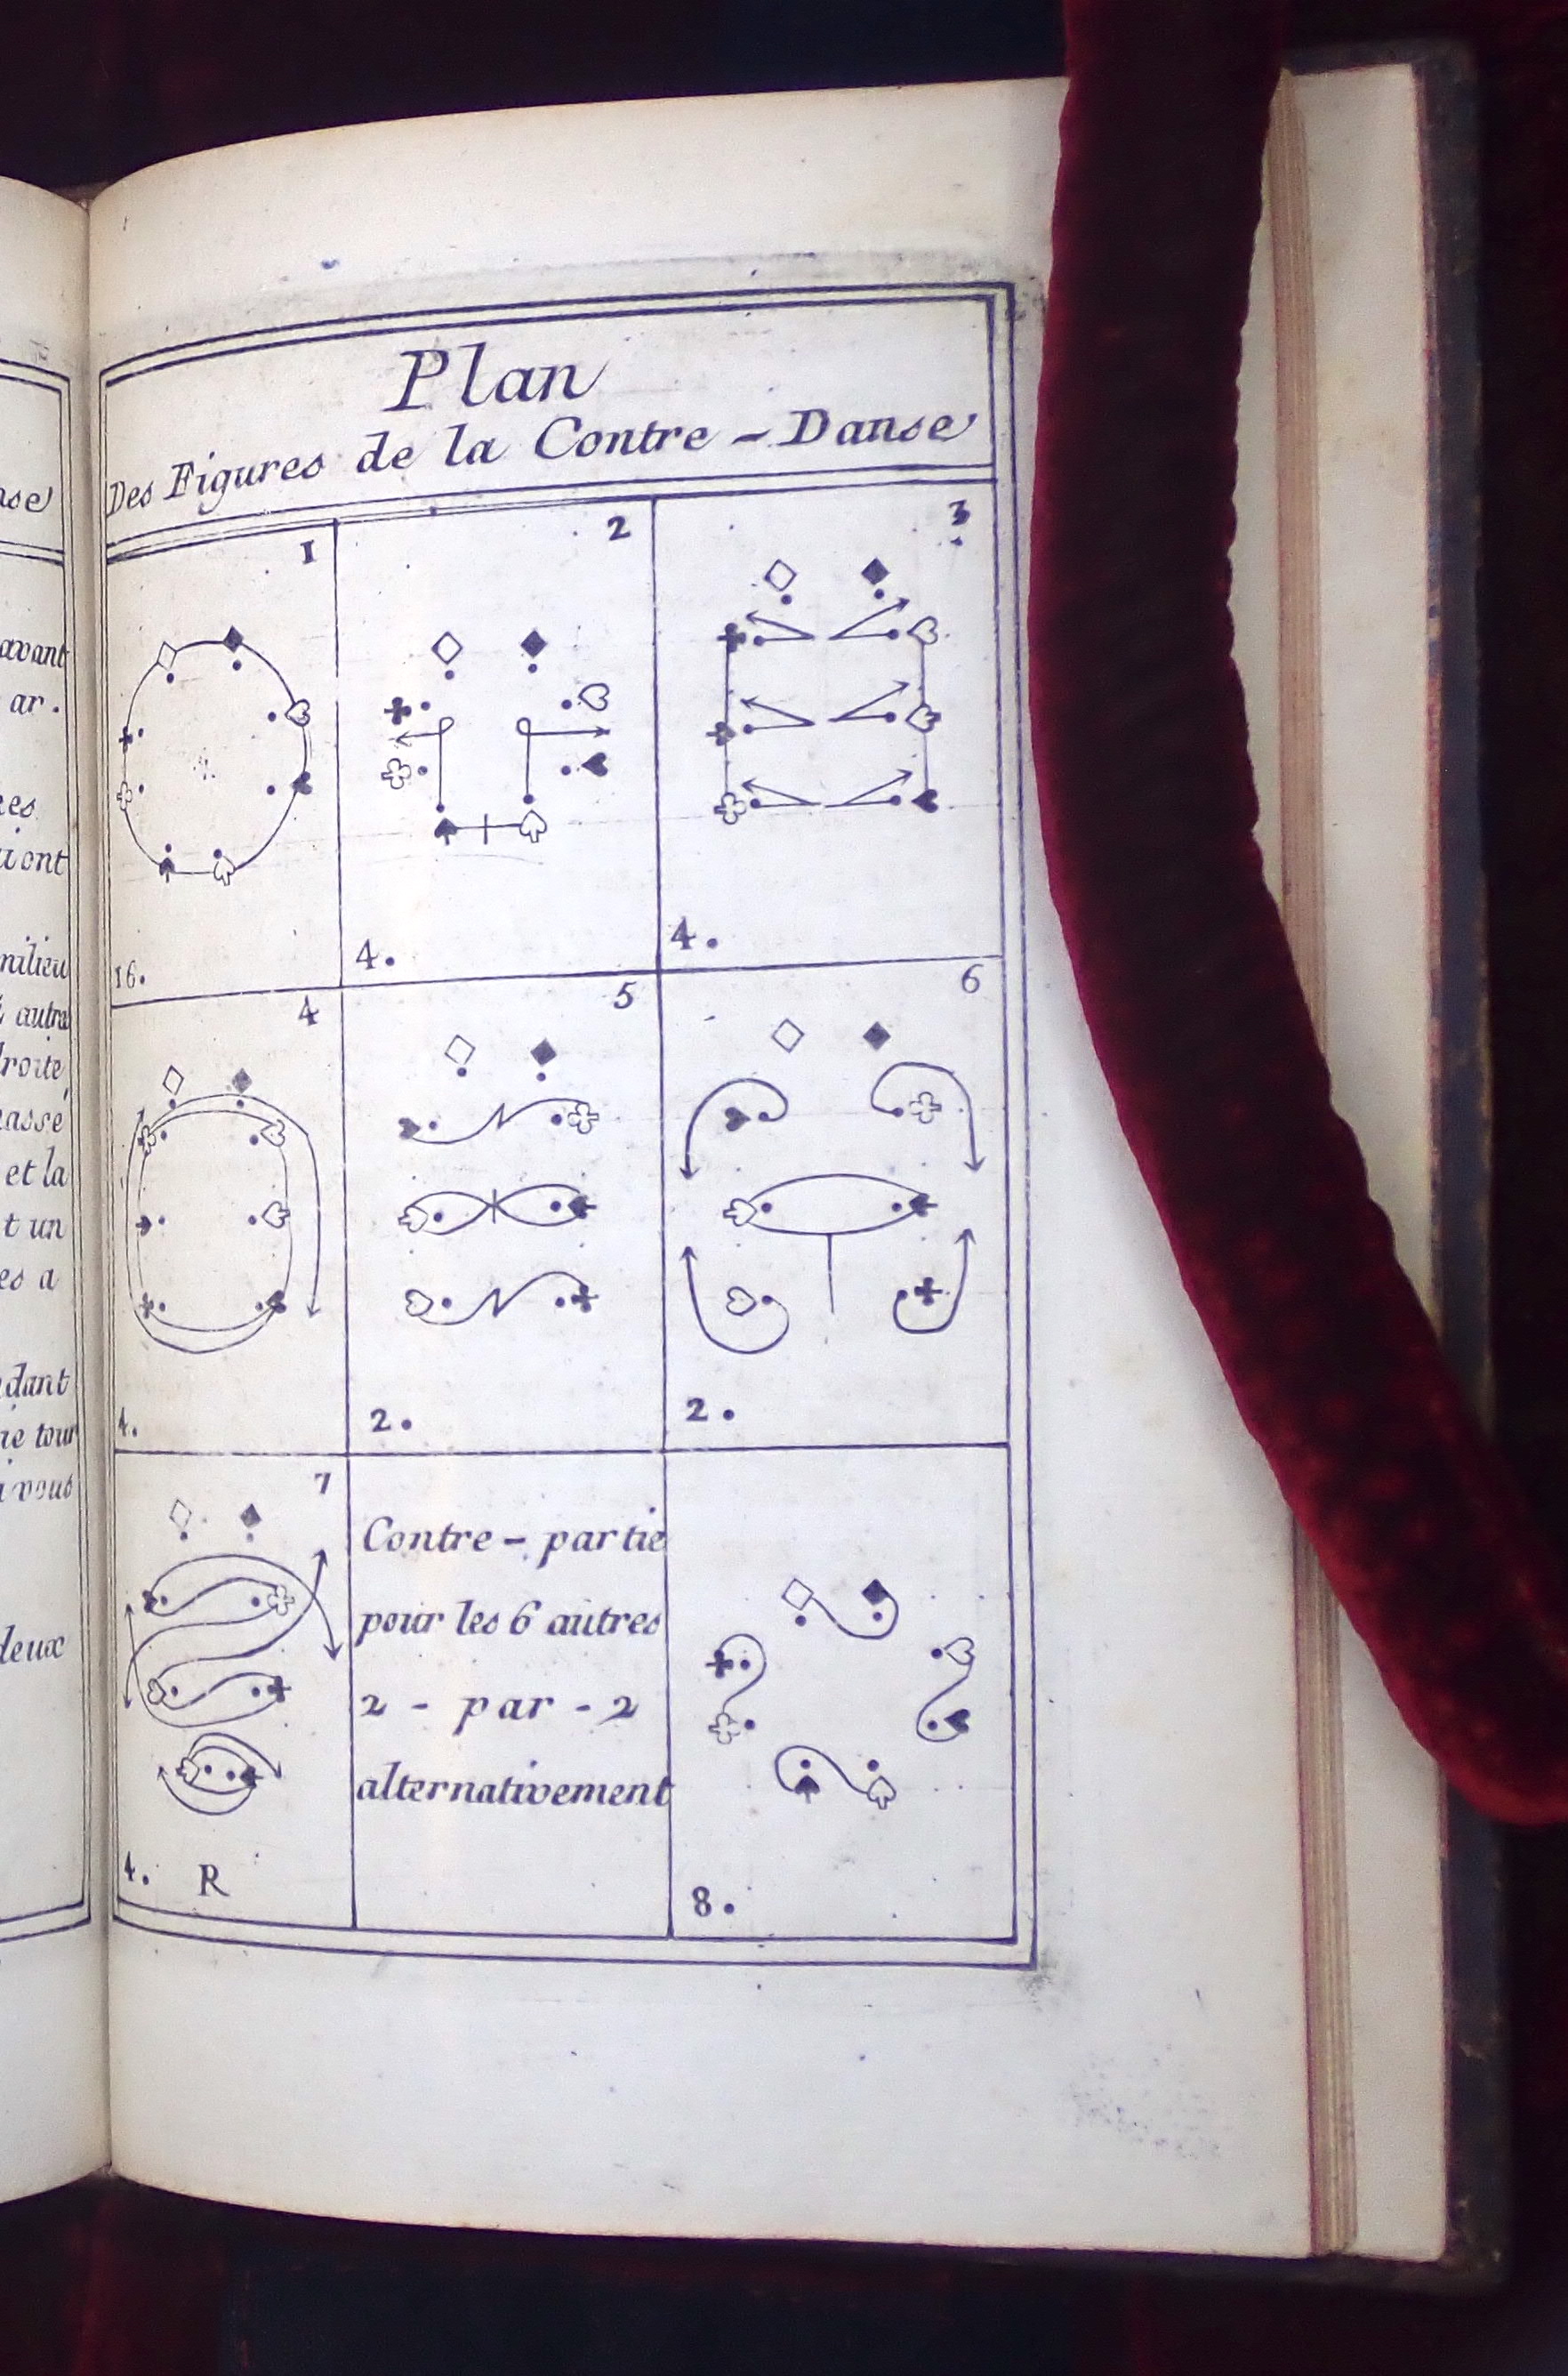 nse
avant
ar.
res
milieu
autre
droite,
hassé
et la
t un
es a
ndant
ne tour
vous
deux
Plan
Des Figures de la Contre - Danse
1
16.
2
4.
3
4.
4
4.
5
2.
6
2.
7
4. R
Contre - partie
pour les 6 autres
2 - par - 2
alternativement
8.